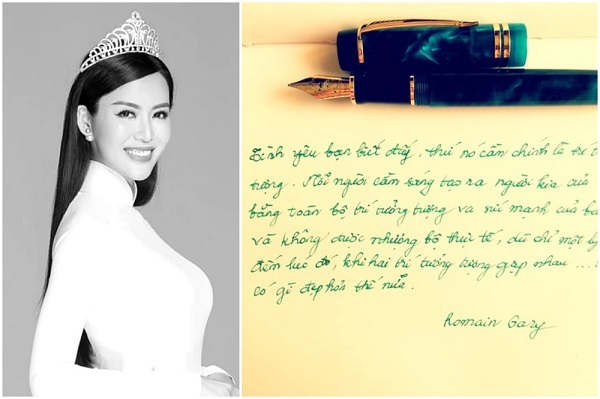 Tình yêu bạn biết đấy, thứ nó cần chính là trí
tượng. Mỗi người cần sáng tạo ra người kia của
bằng toàn bộ trí tưởng tượng và sức mạnh của
và không được nhượng bộ thực tế, dù chỉ một
đến lúc đó, khi hai trí tưởng tượng gặp nhau ...
có gì đẹp hơn thế nữa.
Romain Gary